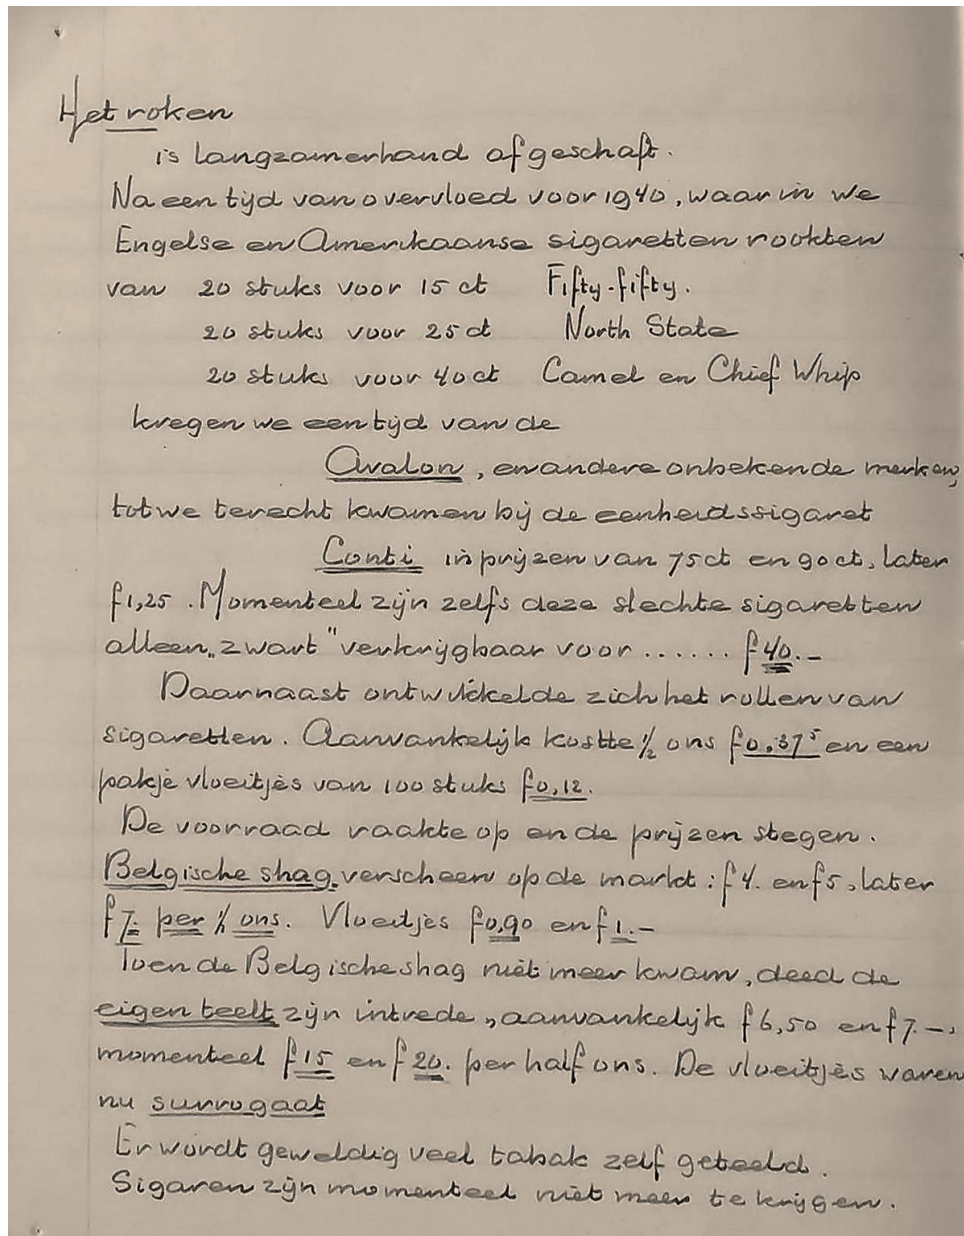 Het roken
is langzamerhand afgeschaft.
Na een tijd van overvloed voor 1940, waarin we
Engelse en Amerikaanse sigaretten rookten
van 20 stuks voor 15 ct Fifty-fifty.
20 stuks voor 25 ct North State
20 stuks voor 40 ct Camel en Chief Whip
kregen we een tijd van de
Avalon, en andere onbekende merken,
tot we terecht kwamen bij de eenheidssigaret
Conti in prijzen van 75 ct en 90 ct, later
f1,25. Momenteel zijn zelfs deze slechte sigaretten
alleen „zwart" verkrijgbaar voor ...... f40.-
Daarnaast ontwikkelde zich het rollen van
sigaretten. Aanvankelijk kostte ½ ons f0.37⁵ en een
pakje vloeitjes van 100 stuks f0,12.
De voorraad raakte op en de prijzen stegen.
Belgische shag verscheen op de markt: f4. en f5, later
f7. per ½ ons. Vloeitjes f0,90 en f1.-
Toen de Belgische shag niet meer kwam, deed de
eigen teelt zijn intrede, aanvankelijk f6,50 en f7.-,
momenteel f15 en f20. per half ons. De vloeitjes waren
nu surrogaat
Er wordt geweldig veel tabak zelf geteeld.
Sigaren zijn momenteel niet meer te krijgen.